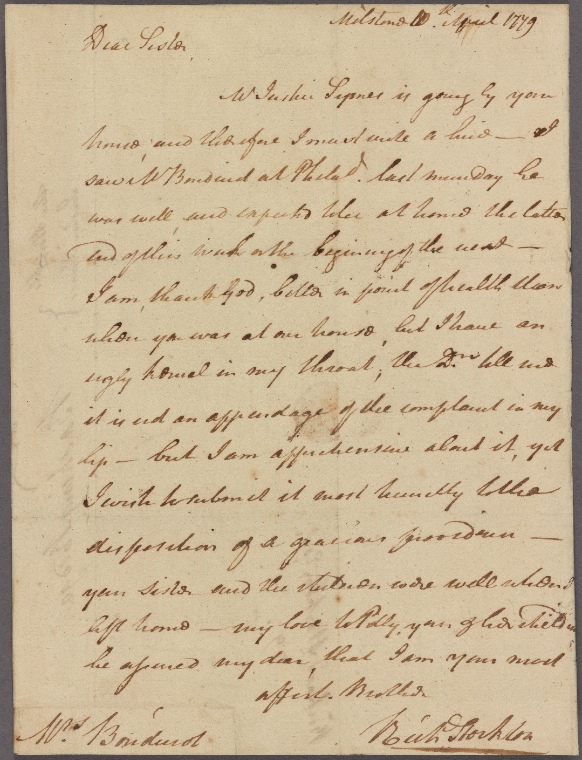 Milstone 10th April 1779
Dear Sister,
Mr Justice Symes is going by your
house, and therefore I must write a line — I
saw Mr Boudinot at Philada. last monday he
was well, and expects to be at home the latter
end of this week or the begining of the next —
I am, thank God, better in point of health than
when you was at our house, but I have an
ugly kernel in my throat, the Drs tell me
it is not an appendage of the complaint in my
lip — but I am apprehensive about it, yet
I wish to submit it most humbly to the
disposition of a gracious providence —
your Sister and the children were well when I
left home — my love to Polly, your & her Children
be assured my dear, that I am your most
affect. Brother
Mrs Boudinot
Richd Stockton